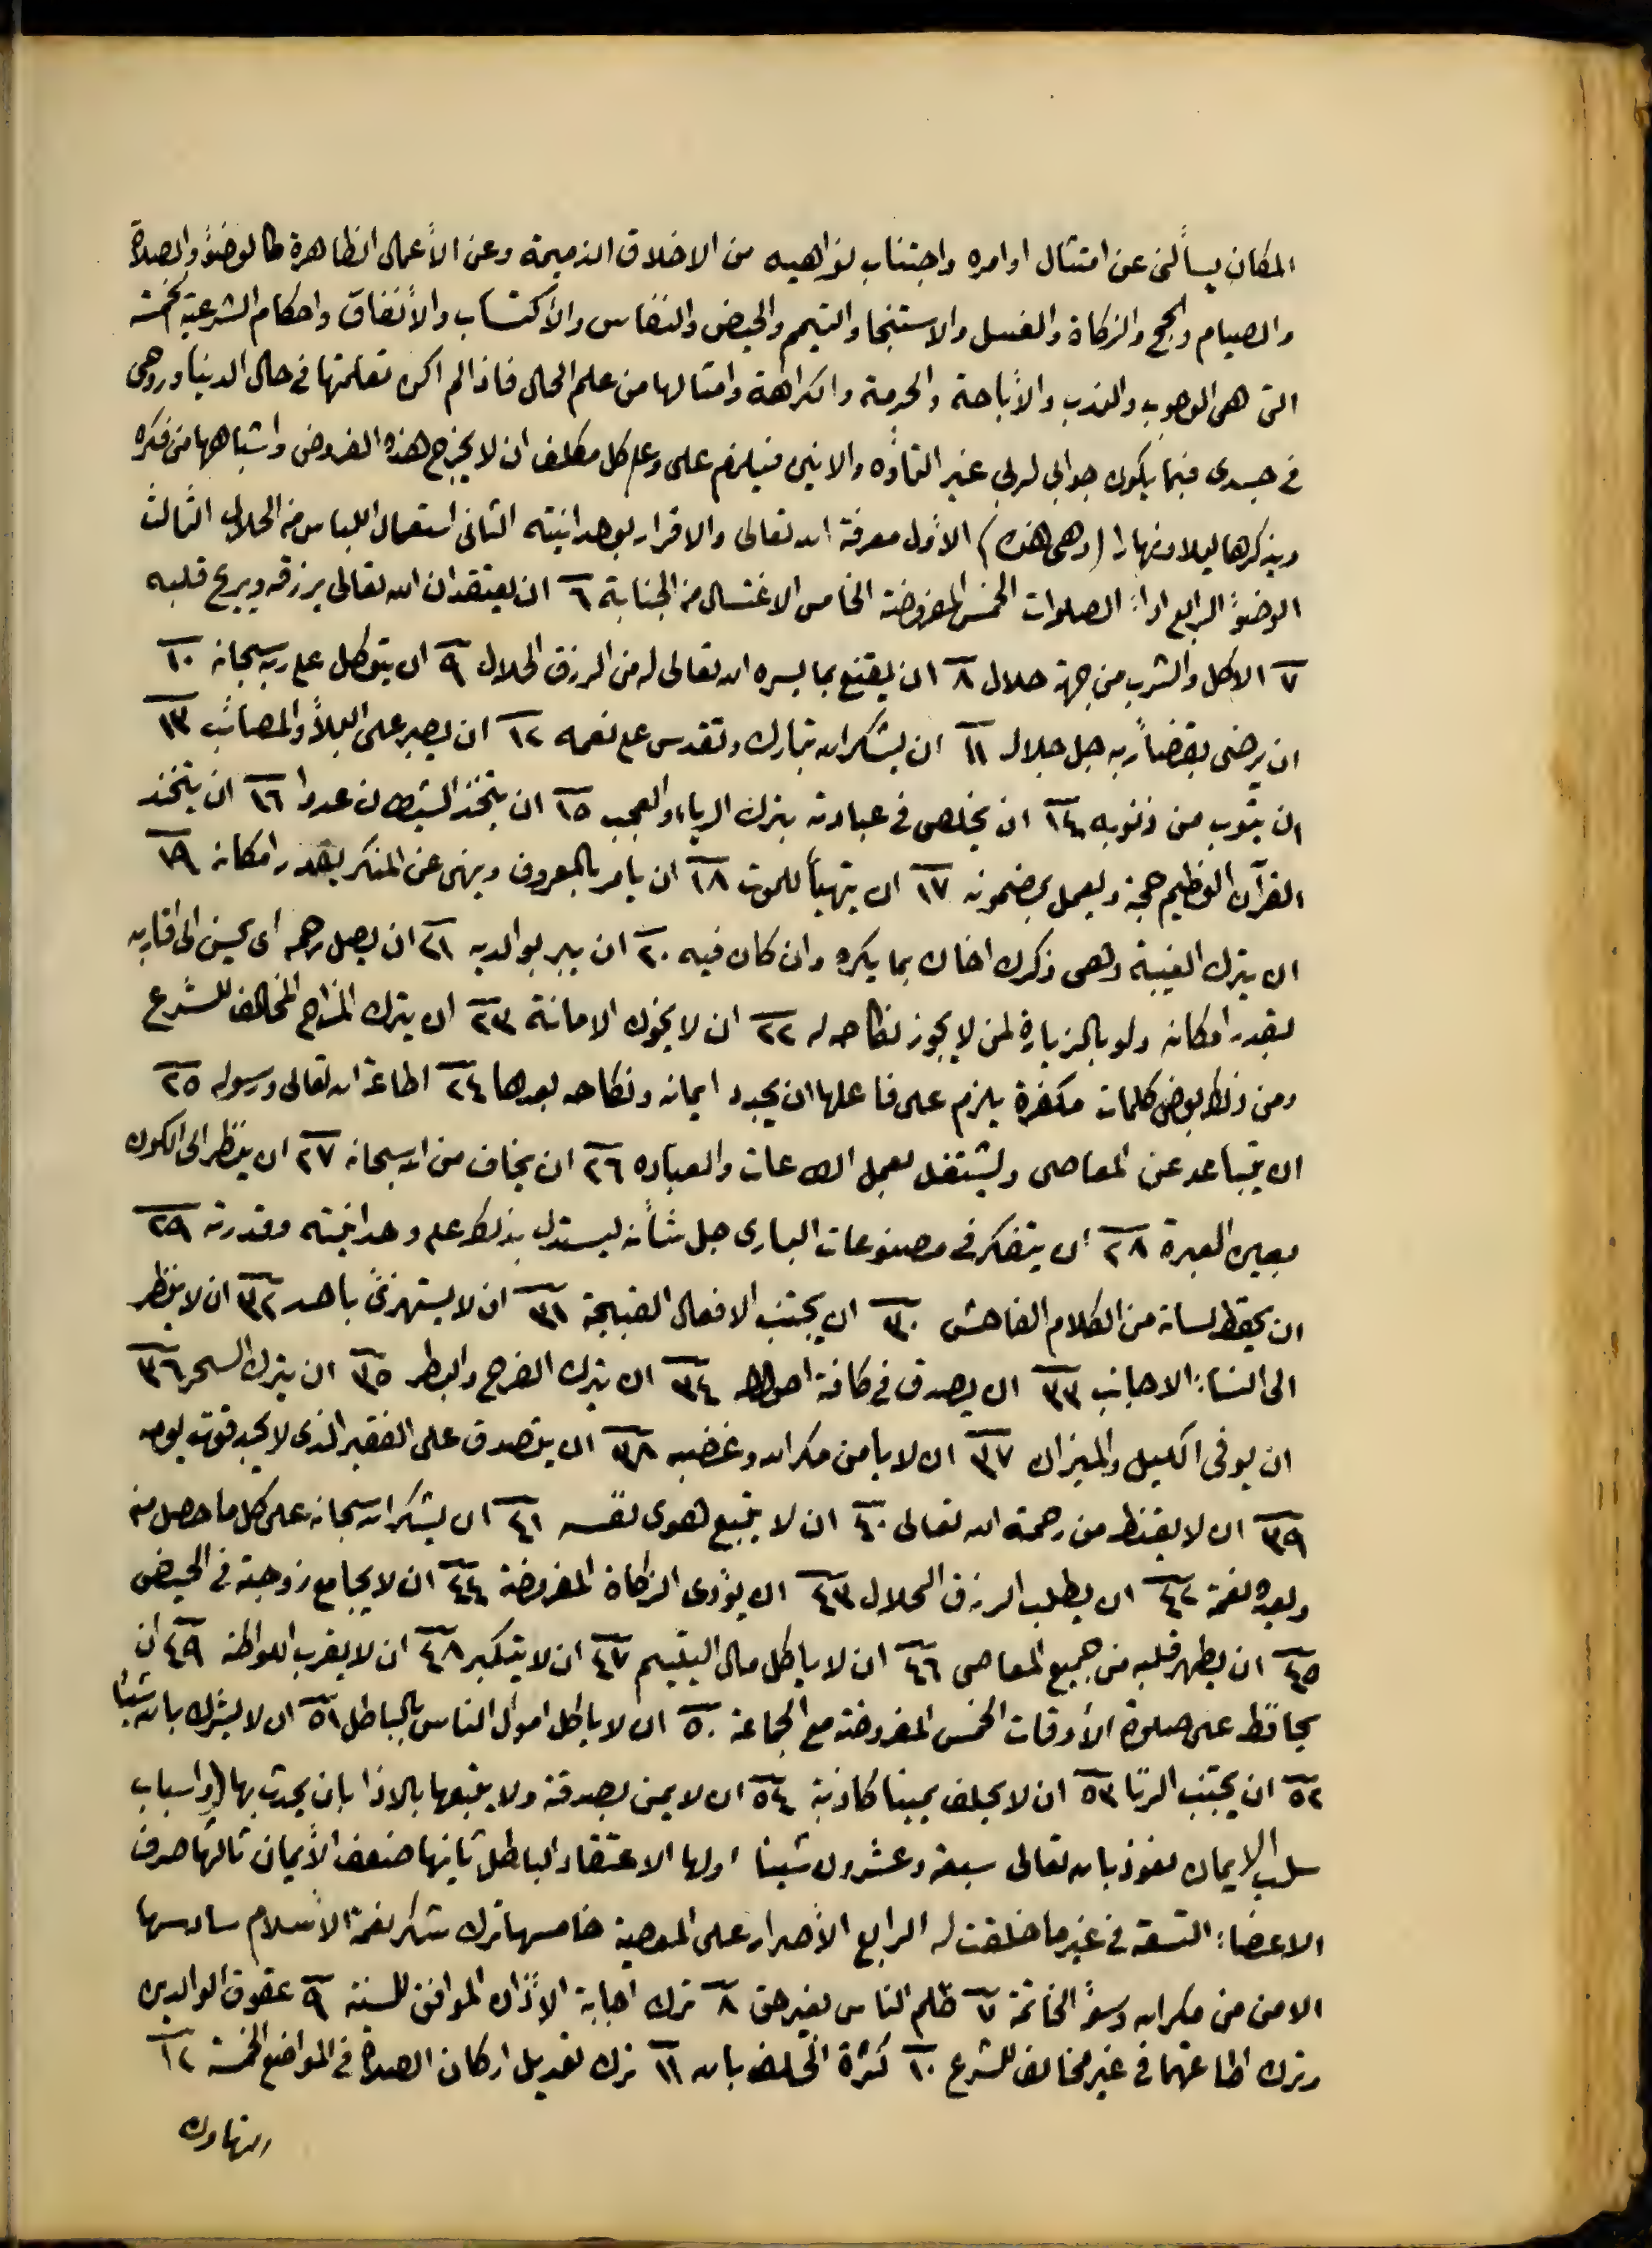 المكان يسألني عن امتثال اوامره واجتناب نواهيه من الاخلاق الذميمة وعن الأعمال الظاهرة كالوضوء والصلاة
والصيام والحج والزكاة والغسل والاستنجا والتيمم والحيض والنفاس والأكتساب والأنفاق واحكام الشرعية الخمسة
التى هى الوجوب والندب والأباحة والحرمة والكراهة وامثالها من علم الحال فاذا لم اكن تعلمتها في حال الدنيا وروحى
في جسدى فبما يكون جوابي لربي غير التأوه والانين فيلزم على وعلى كل مكلف ان لا يخرج هذه الفروض واشباهها من فكره
ويذكرها ليلا ونهارا (وهى هذه) الأول معرفة الله تعالى والاقرار بوحدانيته الثانى استعمال اللباس من الحلال الثالث
الوضوء الرابع اداء الصلوات الخمس المفروضة الخامس الاغتسال من الجنابة ٦ ان يعتقد ان الله تعالى يرزقه ويريح قلبه
٧ الاكل والشرب من جهة حلال ٨ ان يقنع بما يسره الله تعالى له من الرزق الحلال ٩ ان يتوكل على ربه سبحانه ١٠
ان يرضى بقضاء ربه جل جلاله ١١ ان يشكر الله تبارك وتقدس على نعمه ١٢ ان يصبر على البلاء والمصائب ١٣
ان يتوب من ذنوبه ١٤ ان يخلص في عبادته بترك الرياء والعجب ١٥ ان يتخذ الشيطان عدوا ١٦ ان يتخذ
القرآن العظيم حجة ويعمل بمضمونه ١٧ ان يتهيأ للموت ١٨ ان يامر بالمعروف وينهى عن المنكر بقدر امكانه ١٩
ان يترك الغيبة وهى ذكرك اخاك بما يكره وان كان فيه ٢٠ ان يبر بوالديه ٢١ ان يصل رحمه اى يحسن الى اقاربه
بقدر امكانه ولو بالزيارة لمن لا يجوز نكاحه له ٢٢ ان لا يخون الامانة ٢٣ ان يترك المزاح المخالف للشرع
ومن ذلك بعض كلمات مكفرة يلزم على فاعلها ان يجدد ايمانه ونكاحه بعدها ٢٤ اطاعة الله تعالى ورسوله ٢٥
ان يتباعد عن المعاصى ويشتغل بعمل الطاعات والعباده ٢٦ ان يخاف من الله سبحانه ٢٧ ان ينظر الى الكون
بعين العبرة ٢٨ ان يتفكر في مصنوعات البارى جل شأنه ليستدل بذلك على وحدانيته وقدرته ٢٩
ان يحفظ لسانه من الكلام الفاحش ٣٠ ان يجتنب الافعال القبيحة ٣١ ان لا يستهزئ باحد ٣٢ ان لا ينظر
الى النساء الاجانب ٣٣ ان يصدق في كافة احواله ٣٤ ان يترك الفرح والبطر ٣٥ ان يترك السحر ٣٦
ان يوفى الكيل والميزان ٣٧ ان لا يأمن مكر الله وغضبه ٣٨ ان يتصدق على الفقير الذى لا يجد قوت يومه
٣٩ ان لا يقنط من رحمة الله تعالى ٤٠ ان لا يتبع هوى نفسه ٤١ ان يشكر الله سبحانه على كل ما حصل منه
ويعده نعمة ٤٢ ان يطلب الرزق الحلال ٤٣ ان يؤدى الزكاة المفروضة ٤٤ ان لا يجامع زوجته في الحيض
٤٥ ان يطهر قلبه من جميع المعاصى ٤٦ ان لا ياكل مال اليتيم ٤٧ ان لا يتكبر ٤٨ ان لا يقرب اللواطه ٤٩ ان
يحافظ على صلوة الأوقات الخمس المفروضة مع الجماعة ٥٠ ان لا ياكل اموال الناس بالباطل ٥١ ان لا يشرك بالله شيئا
٥٢ ان يجتنب الزنا ٥٣ ان لا يحلف يمينا كاذبة ٥٤ ان لا يمن بصدقته ولا يتبعها بالاذا بان يحدث بها (واسباب
سلب الايمان نعوذ بالله تعالى سبعة وعشرون شيئا اولها الاعتقاد الباطل ثانيها ضعف الأيمان ثالثها صرف
الاعضاء التسعة في غير ما خلقت له الرابع الأصرار على المعصية خامسها ترك شكر نعمة الأسلام سادسها
الامن من مكر الله وسوء الخاتمة ٧ ظلم الناس بغير حق ٨ ترك اجابة الأذان الموافق للسنة ٩ عقوق الوالدين
وترك اطاعتهما في غير مخالف للشرع ١٠ كثرة الحلف بالله ١١ ترك تعديل اركان الصلاة في المواضع الخمسة ١٢